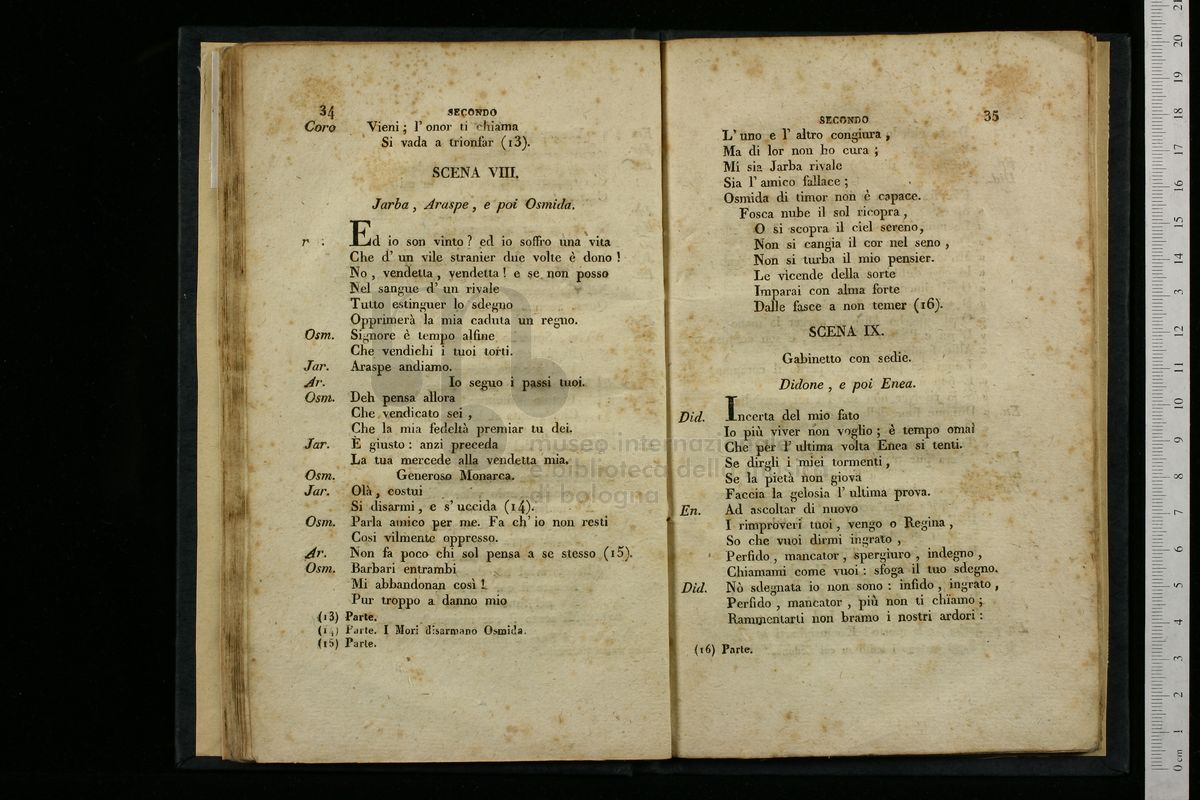 34
SECONDO
Coro Vieni ; l' onor ti chiama
Si vada a trionfar (13).
SCENA VIII.
Jarba , Araspe , e poi Osmida.
r : Ed io son vinto ? ed io soffro una vita
Che d' un vile stranier due volte è dono !
No , vendetta , vendetta ! e se non posso
Nel sangue d' un rivale
Tutto estinguer lo sdegno
Opprimerà la mia caduta un regno.
Osm. Signore è tempo alfine
Che vendichi i tuoi torti.
Jar. Araspe andiamo.
Ar. Io seguo i passi tuoi.
Osm. Deh pensa allora
Che vendicato sei ,
Che la mia fedeltà premiar tu dei.
Jar. È giusto : anzi preceda
La tua mercede alla vendetta mia.
Osm. Generoso Monarca.
Jar. Olà , costui
Si disarmi , e s' uccida (14).
Osm. Parla amico per me. Fa ch' io non resti
Cosi vilmente oppresso.
Ar. Non fa poco chi sol pensa a se stesso (15).
Osm. Barbari entrambi
Mi abbandonan così !
Pur troppo a danno mio
(13) Parte.
(14) Parte. I Mori disarmano Osmida.
(15) Parte.
SECONDO
35
L' uno e l' altro congiura ,
Ma di lor non ho cura ;
Mi sia Jarba rivale
Sia l' amico fallace ;
Osmida di timor non è capace.
Fosca nube il sol ricopra ,
O si scopra il ciel sereno,
Non si cangia il cor nel seno ,
Non si turba il mio pensier.
Le vicende della sorte
Imparai con alma forte
Dalle fasce a non temer (16).
SCENA IX.
Gabinetto con sedie.
Didone , e poi Enea.
Did. Incerta del mio fato
Io più viver non voglio ; è tempo omai
Che per l' ultima volta Enea si tenti.
Se dirgli i miei tormenti ,
Se la pietà non giova
Faccia la gelosia l' ultima prova.
En. Ad ascoltar di nuovo
I rimproveri tuoi , vengo o Regina ,
So che vuoi dirmi ingrato ,
Perfido , mancator , spergiuro , indegno ,
Chiamami come vuoi : sfoga il tuo sdegno.
Did. Nò sdegnata io non sono : infido , ingrato ,
Perfido , mancator , più non ti chiamo ;
Rammentarti non bramo i nostri ardori :
(16) Parte.
museo internazionale
e biblioteca della musica
di bologna